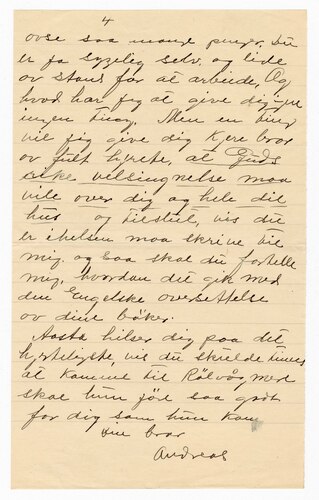 4
ovse saa mange penger, Du
er jo syzelig selv, og lide
ov stand for at arbeide, Og
hvod har jeg at give dig,
ingen ting. Men en ting
vil jeg give dig kjere bror
ov fult hjerte, at Guds
rike velsingnelse maa
vile over dig og hele dit
hus og tilstul, vis du
er ihelsen maa skrive til
mig, og saa skal du fortelle
mig, hvordan dit gik med
den Engelske oversettelse
ov dine bøker.
Aasta hilser dig paa det
hjerteligste vis du skulde
at komme til Rölvåg, med
skal hun jöl saa godt
for dig som hun kan
din bror
Andreas